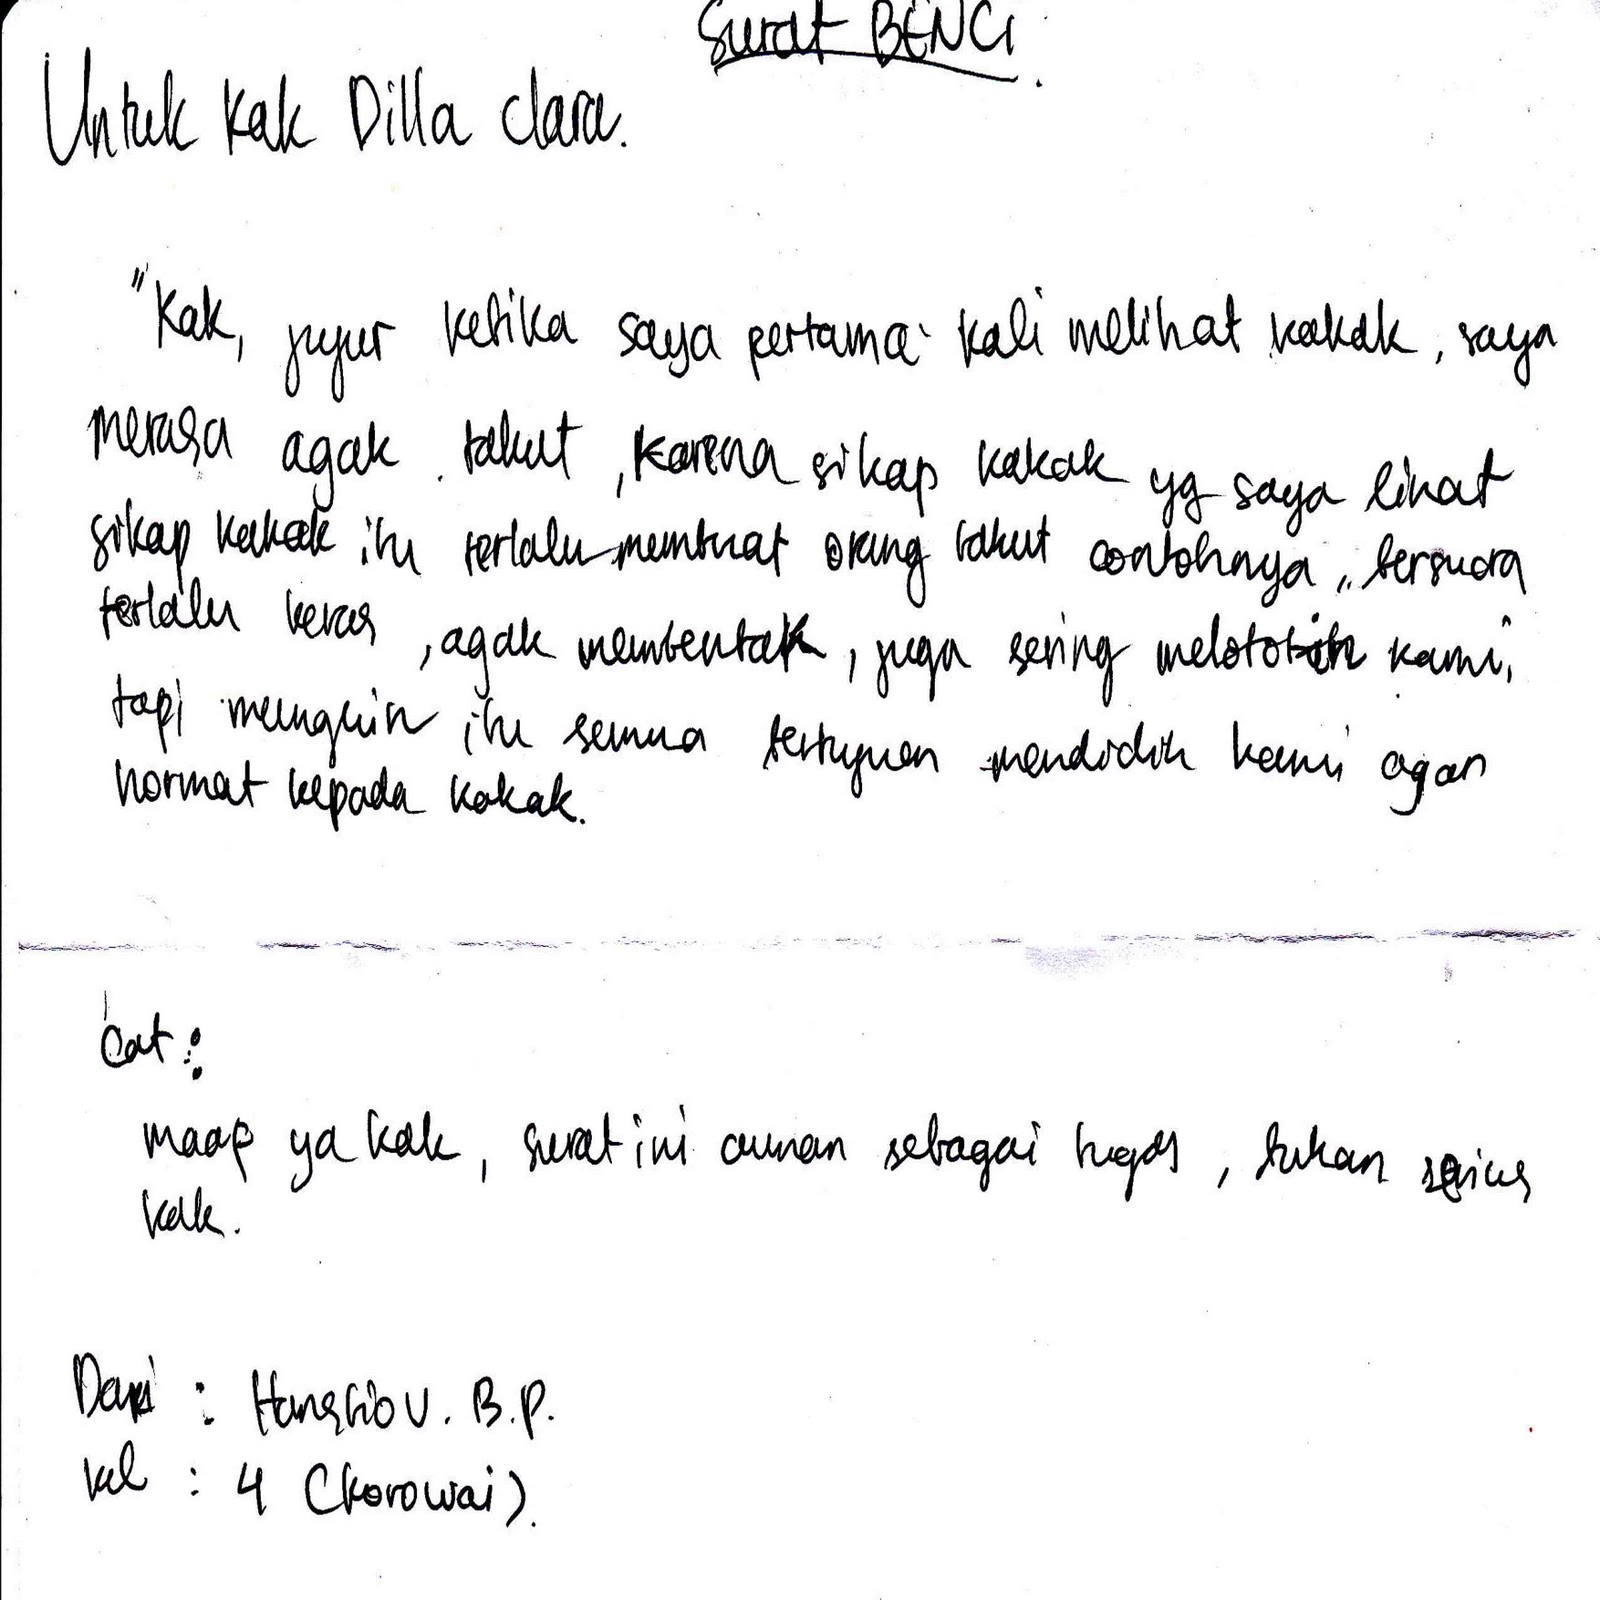 Surat BENCI.
Untuk Kak Dilla clara.
"Kak, jujur ketika saya pertama kali melihat kakak, saya
merasa agak takut, karena sikap kakak yg saya lihat
sikap kakak itu terlalu membuat orang takut contohnya, bersuara
terlalu keras, agak membentak, juga sering melototin kami,
tapi mungkin itu semua bertujuan mendidik kami agar
hormat kepada kakak.
Cat :
maap ya kak, surat ini cuman sebagai tugas, bukan serius
kak.
Dari : V. B.P.
kel : 4 (korowai).